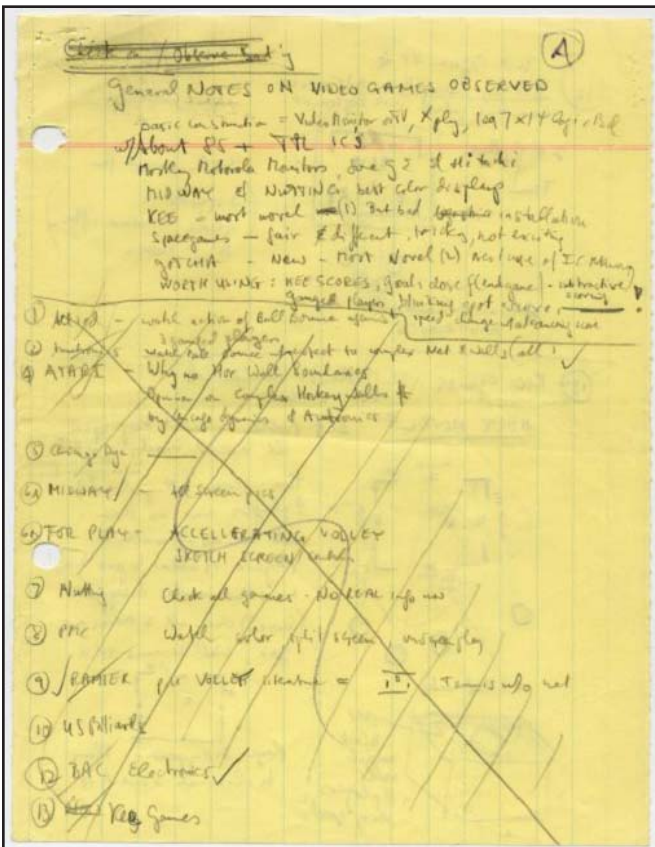 Check on / Observe
A
General NOTES ON VIDEO GAMES OBSERVED
basic construction = Video Monitor or TV, Xply, 1 eg 7x14 Logic Bd
w/About 85 + TTL ICs
Mostly Motorola Monitors, some & Hitachi
MIDWAY & NUTTING best color displays
KEE - most novel (1) But bad installation
Spacegames - fair & different, tricky, not exciting
GOTCHA - New - Most Novel (2) use of I.C. Memory
WORTH USING: KEE SCORES, Goals close f(endgame) - subtractive scoring!
ganged player, blinking spot
① - watch action of Ball Bounce speed change
3 ganged players
② watch ball bounce to complex Net & walls (all) ✓
④ ATARI - Why no Hor Wall Boundaries
Opinion on Complex Hockey walls
by Chicago Dynamics &
⑤ Chicago Dyn
MIDWAY - screen pics
FOR PLAY - ACCELLERATING VOLLEY
SKETCH SCREEN
⑦ Nutting Check all games - NO REAL info
⑧ PMC Watch color split screen
⑨ √ RAMTEK VOLLEY literature = Tennis w/o net
⑩ US Billiards
⑫ BAC Electronics ✓
⑬ Kee Games